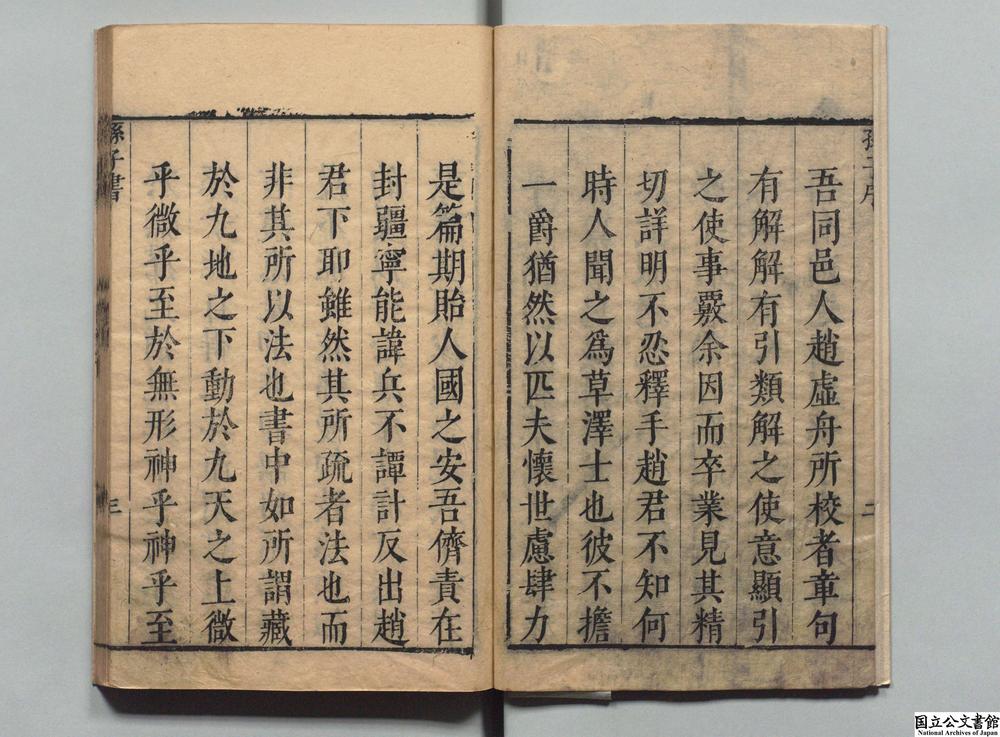 吾同邑人趙虛舟所校者章句
有解解有引類解之使意顯引
之使事覈余因而卒業見其精
切詳明不忍釋手趙君不知何
時人聞之為草澤士也彼不擔
一爵猶然以匹夫懷世慮肆力
是篇期貽人國之安吾儕責在
封疆寧能諱兵不譚計反出趙
君下耶雖然其所疏者法也而
非其所以法也書中如所謂藏
於九地之下動於九天之上微
乎微乎至於無形神乎神乎至
孫子書
三
国立公文書館
National Archives of Japan